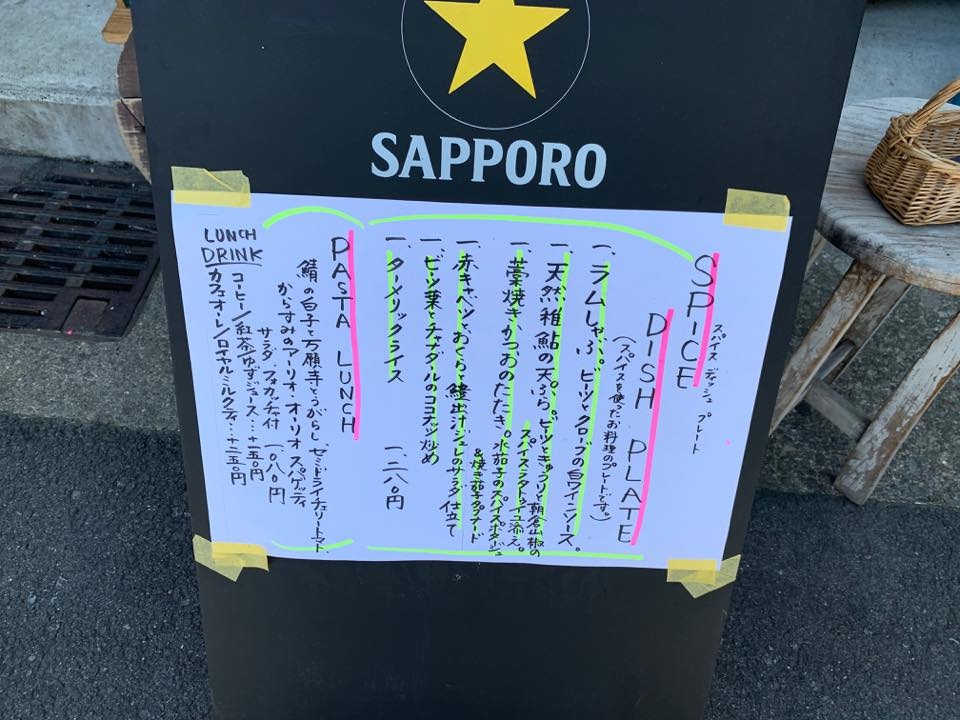 SAPPORO
SPICE
DISH PLATE
スパイス ディッシュ プレート
(スパイスを使ったお料理のプレートです。)
一、ラムしゃぶ。ビーツとクローブの白ワインソース。
一、天然稚鮎の天ぷら。ビーツときゅうりと朝倉山椒の
スパイスラタトゥイユ添え。
一、藁焼きかつおのたたき。水茄子のスパイスポタージュ
&焼き茄子のタプナード
一、赤キャベツとおくら、鰹出汁ジュレのサラダ仕立て
一、ビーツ葉とチャナダールのココナッツ炒め
一、ターメリックライス
一、二八〇円
PASTA LUNCH
鯖の白子と万願寺とうがらし、セミドライチェリートマト、
からすみのアーリオ・オーリオ スパゲッティ
サラダ、フォカッチャ付 一、〇八〇円
LUNCH
DRINK
コーヒー/紅茶/ゆずジュース…+一五〇円
カフェオーレ/ロイヤルミルクティ…+二五〇円